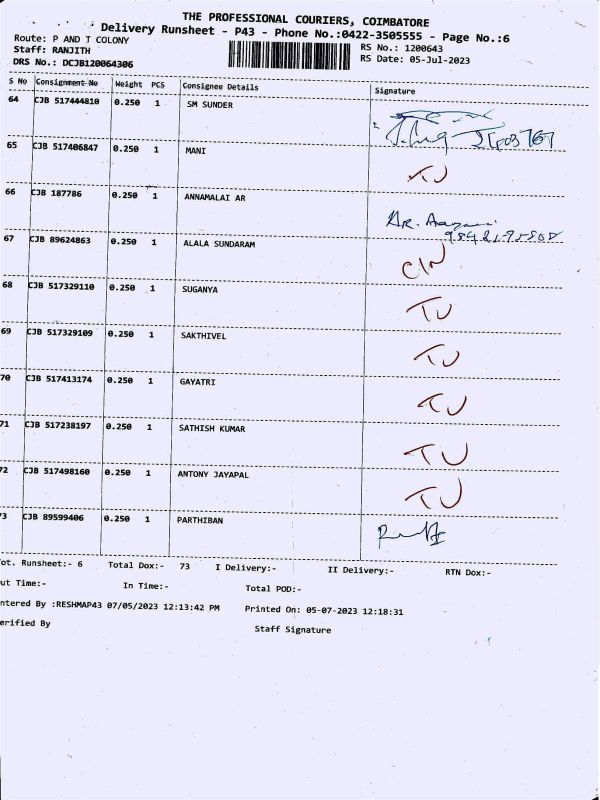 THE PROFESSIONAL COURIERS, COIMBATORE
Delivery Runsheet - P43 - Phone No.:0422-3505555 - Page No.:6
Route: P AND T COLONY
RS No.: 1200643
Staff: RANJITH
RS Date: 05-Jul-2023
DRS No.: DCJB120064306
S No Consignment No Weight PCS Consignee Details Signature
64 CJB 517444810 0.250 1 SM SUNDER
65 CJB 517406847 0.250 1 MANI TU
66 CJB 187786 0.250 1 ANNAMALAI AR AR.
67 CJB 89624863 0.250 1 ALALA SUNDARAM CIN
68 CJB 517329110 0.250 1 SUGANYA TU
69 CJB 517329109 0.250 1 SAKTHIVEL TU
70 CJB 517413174 0.250 1 GAYATRI TU
71 CJB 517238197 0.250 1 SATHISH KUMAR TU
72 CJB 517498160 0.250 1 ANTONY JAYAPAL TU
73 CJB 89599406 0.250 1 PARTHIBAN
ot. Runsheet:- 6 Total Dox:- 73 I Delivery:- II Delivery:- RTN Dox:-
ut Time:- In Time:- Total POD:-
ntered By :RESHMAP43 07/05/2023 12:13:42 PM Printed On: 05-07-2023 12:18:31
erified By Staff Signature